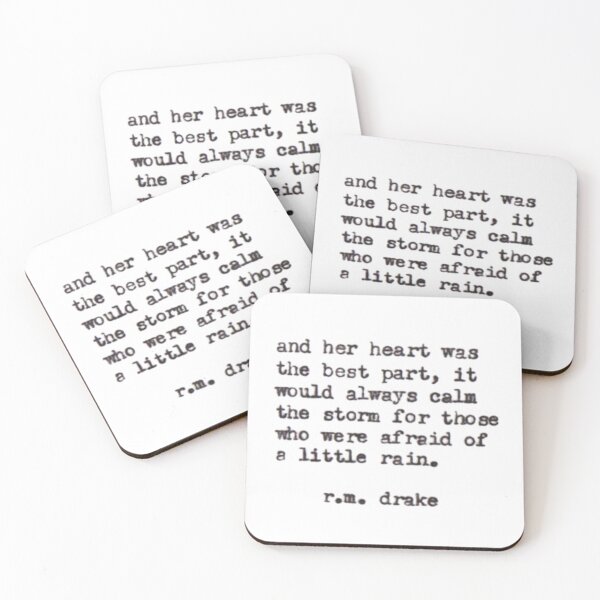 and her heart was
the best part, it
would always calm
the
and her heart was
the best part, it
would always calm
the storm for those
who were afraid of
a little rain.
and her heart was
the best part, it
would always calm
the storm for those
who were afraid of
a little rain
r.m.
and her heart was
the best part, it
would always calm
the storm for those
who were afraid of
a little rain.
r.m. drake